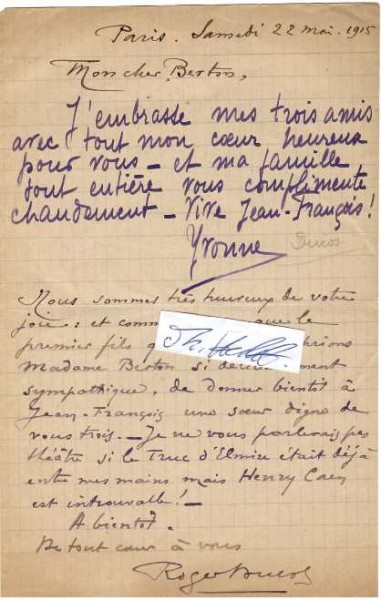 Paris. Samedi 22 mai. 1915
Mon cher Berton,
J'embrasse mes trois amis
avec tout mon cœur heureux
pour vous – et ma famille
tout entière vous complimente
chaudement – Vive Jean-François!
Yvonne
Nous sommes très heureux de votre
joie: et comm que le
premier fils
Madame Berton si
sympathique, de donner bientôt à
Jean-François une sœur digne de
vous trois. – Je ne vous parlerais pas
théâtre si le Truc d'Elmire était déjà
entre mes mains mais Henry Caen
est introuvable! –
A bientôt.
De tout cœur à vous
Roger